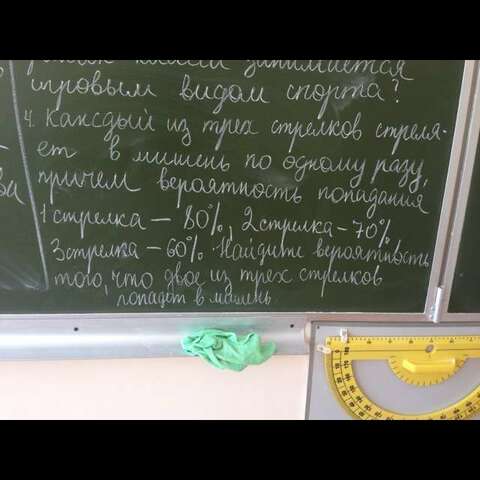 занимается
игровым видом спорта?
4. Каждый из трех стрелков стреля-
ет в мишень по одному разу,
причем вероятность попадания
1 стрелка – 80%, 2 стрелка – 70%
3 стрелка – 60%. Найдите вероятность
того, что двое из трех стрелков
попадет в мишень